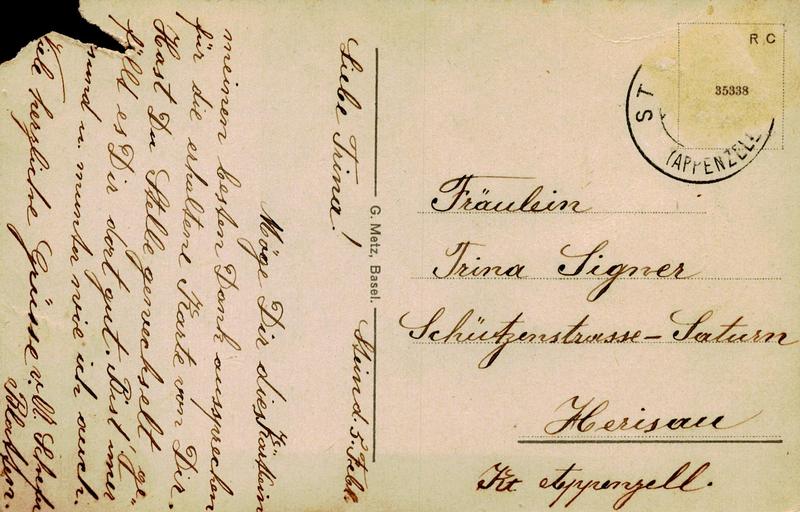 Steind. 5. Febr.
Liebe Trina!
Möge Dir dies Kärtlein
meinen besten Dank aussprechen
für die erhaltene Karte von Dir.
Hast Du Stelle gewechselt ge-
fällt es Dir dort gut. Bist immer
und u. munter wie ich auch.
herzliche Grüsse v. M.
Blatten.
G. Metz, Basel.
R C
35338
ST
(APPENZELL
Fräulein
Trina Signer
Schützenstrasse - Saturn
Herisau
Kt. Appenzell.